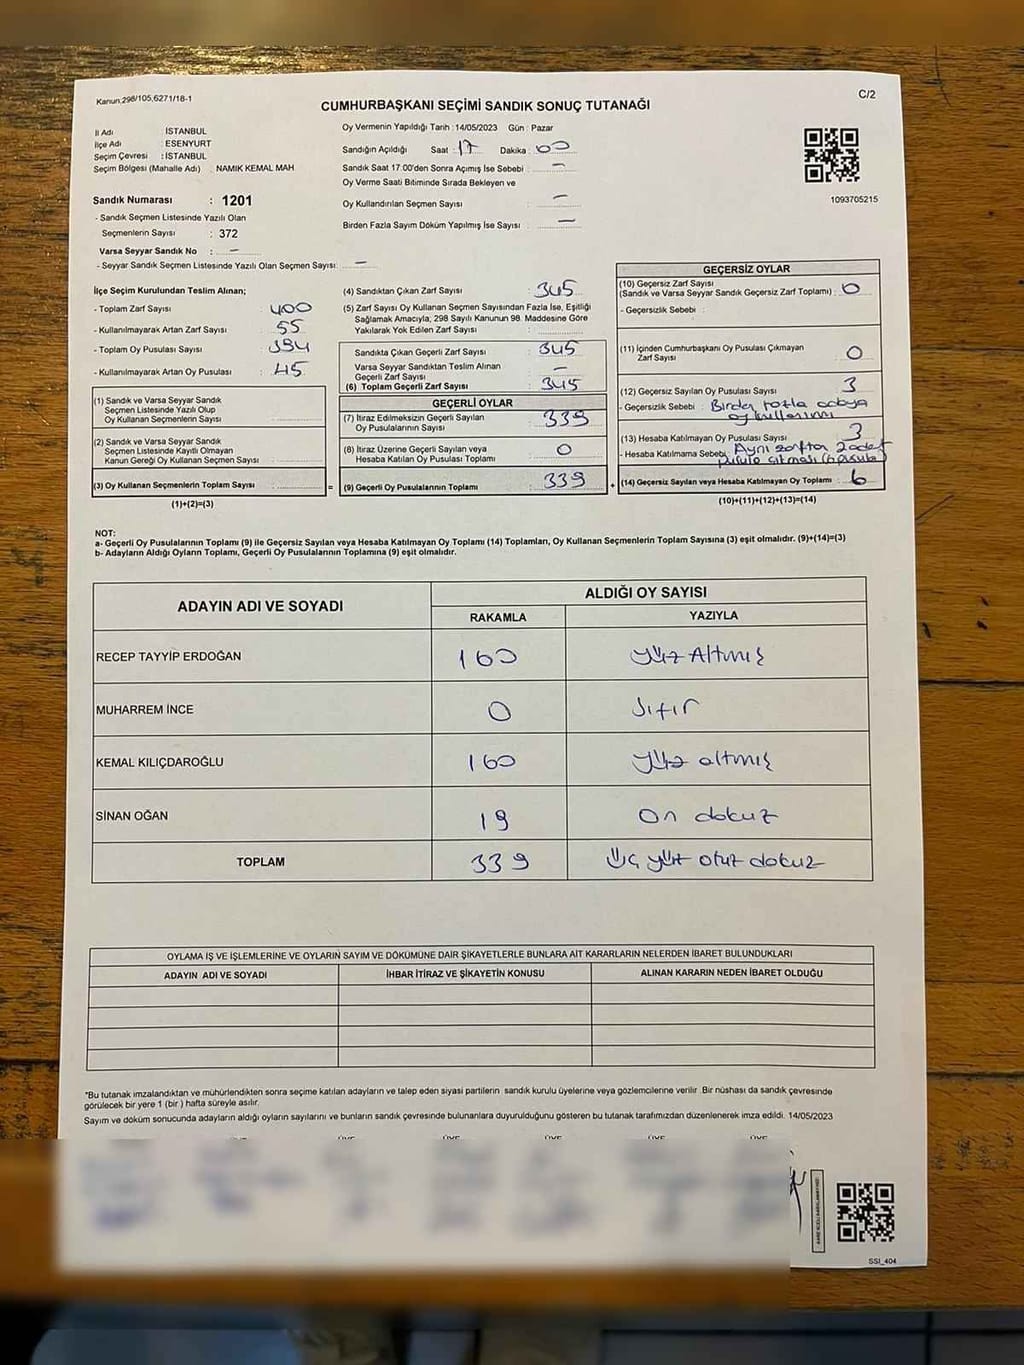 Kanun:298/105,6271/18-1
C/2
CUMHURBAŞKANI SEÇİMİ SANDIK SONUÇ TUTANAĞI
İl Adı : İSTANBUL
İlçe Adı : ESENYURT
Seçim Çevresi : İSTANBUL
Seçim Bölgesi (Mahalle Adı) : NAMIK KEMAL MAH
Sandık Numarası : 1201
- Sandık Seçmen Listesinde Yazılı Olan
Seçmenlerin Sayısı : 372
Varsa Seyyar Sandık No : —
- Seyyar Sandık Seçmen Listesinde Yazılı Olan Seçmen Sayısı: —
Oy Vermenin Yapıldığı Tarih :14/05/2023 Gün : Pazar
Sandığın Açıldığı Saat : 17 Dakika : 00
Sandık Saat 17.00'den Sonra Açımış İse Sebebi : —
Oy Verme Saati Bitiminde Sırada Bekleyen ve
Oy Kullandırılan Seçmen Sayısı : —
Birden Fazla Sayım Döküm Yapılmış İse Sayısı : —
1093705215
İlçe Seçim Kurulundan Teslim Alınan;
- Toplam Zarf Sayısı : 400
- Kullanılmayarak Artan Zarf Sayısı : 55
- Toplam Oy Pusulası Sayısı : 394
- Kullanılmayarak Artan Oy Pusulası : 45
(1) Sandık ve Varsa Seyyar Sandık
Seçmen Listesinde Yazılı Olup
Oy Kullanan Seçmenlerin Sayısı :
(2) Sandık ve Varsa Seyyar Sandık
Seçmen Listesinde Kayıtlı Olmayan
Kanun Gereği Oy Kullanan Seçmen Sayısı :
(3) Oy Kullanan Seçmenlerin Toplam Sayısı :
(1)+(2)=(3)
(4) Sandıktan Çıkan Zarf Sayısı : 345
(5) Zarf Sayısı Oy Kullanan Seçmen Sayısından Fazla İse, Eşitliği
Sağlamak Amacıyla; 298 Sayılı Kanunun 98. Maddesine Göre
Yakılarak Yok Edilen Zarf Sayısı :
Sandıkta Çıkan Geçerli Zarf Sayısı : 345
Varsa Seyyar Sandıktan Teslim Alınan
Geçerli Zarf Sayısı : —
(6) Toplam Geçerli Zarf Sayısı : 345
GEÇERLİ OYLAR
(7) İtiraz Edilmeksizin Geçerli Sayılan
Oy Pusulalarının Sayısı : 339
(8) İtiraz Üzerine Geçerli Sayılan veya
Hesaba Katılan Oy Pusulası Toplamı : 0
= (9) Geçerli Oy Pusulalarının Toplamı : 339 +
GEÇERSİZ OYLAR
(10) Geçersiz Zarf Sayısı
(Sandık ve Varsa Seyyar Sandık Geçersiz Zarf Toplamı) : 0
- Geçersizlik Sebebi :
(11) İçinden Cumhurbaşkanı Oy Pusulası Çıkmayan
Zarf Sayısı : 0
(12) Geçersiz Sayılan Oy Pusulası Sayısı : 3
- Geçersizlik Sebebi : Birden fazla adaya
oy kullanımı
(13) Hesaba Katılmayan Oy Pusulası Sayısı : 3
- Hesaba Katılmama Sebebi : Aynı zarftan 2 adet
pusula çıkması
(14) Geçersiz Sayılan veya Hesaba Katılmayan Oy Toplamı : 6
(10)+(11)+(12)+(13)=(14)
NOT:
a- Geçerli Oy Pusulalarının Toplamı (9) ile Geçersiz Sayılan veya Hesaba Katılmayan Oy Toplamı (14) Toplamları, Oy Kullanan Seçmenlerin Toplam Sayısına (3) eşit olmalıdır. (9)+(14)=(3)
b- Adayların Aldığı Oyların Toplamı, Geçerli Oy Pusulalarının Toplamına (9) eşit olmalıdır.
ADAYIN ADI VE SOYADI
ALDIĞI OY SAYISI
RAKAMLA YAZIYLA
RECEP TAYYİP ERDOĞAN 160 Yüz Altmış
MUHARREM İNCE 0 Sıfır
KEMAL KILIÇDAROĞLU 160 Yüz altmış
SİNAN OĞAN 19 On dokuz
TOPLAM 339 Üç yüz otuz dokuz
OYLAMA İŞ VE İŞLEMLERİNE VE OYLARIN SAYIM VE DÖKÜMÜNE DAİR ŞİKAYETLERLE BUNLARA AİT KARARLARIN NELERDEN İBARET BULUNDUKLARI
ADAYIN ADI VE SOYADI İHBAR İTİRAZ VE ŞİKAYETİN KONUSU ALINAN KARARIN NEDEN İBARET OLDUĞU
*Bu tutanak imzalandıktan ve mühürlendikten sonra seçime katılan adayların ve talep eden siyasi partilerin sandık kurulu üyelerine veya gözlemcilerine verilir .Bir nüshası da sandık çevresinde
görülecek bir yere 1 (bir ) hafta süreyle asılır.
Sayım ve döküm sonucunda adayların aldığı oyların sayılarını ve bunların sandık çevresinde bulunanlara duyurulduğunu gösteren bu tutanak tarafımızdan düzenlenerek imza edildi. 14/05/2023
SSİ_404